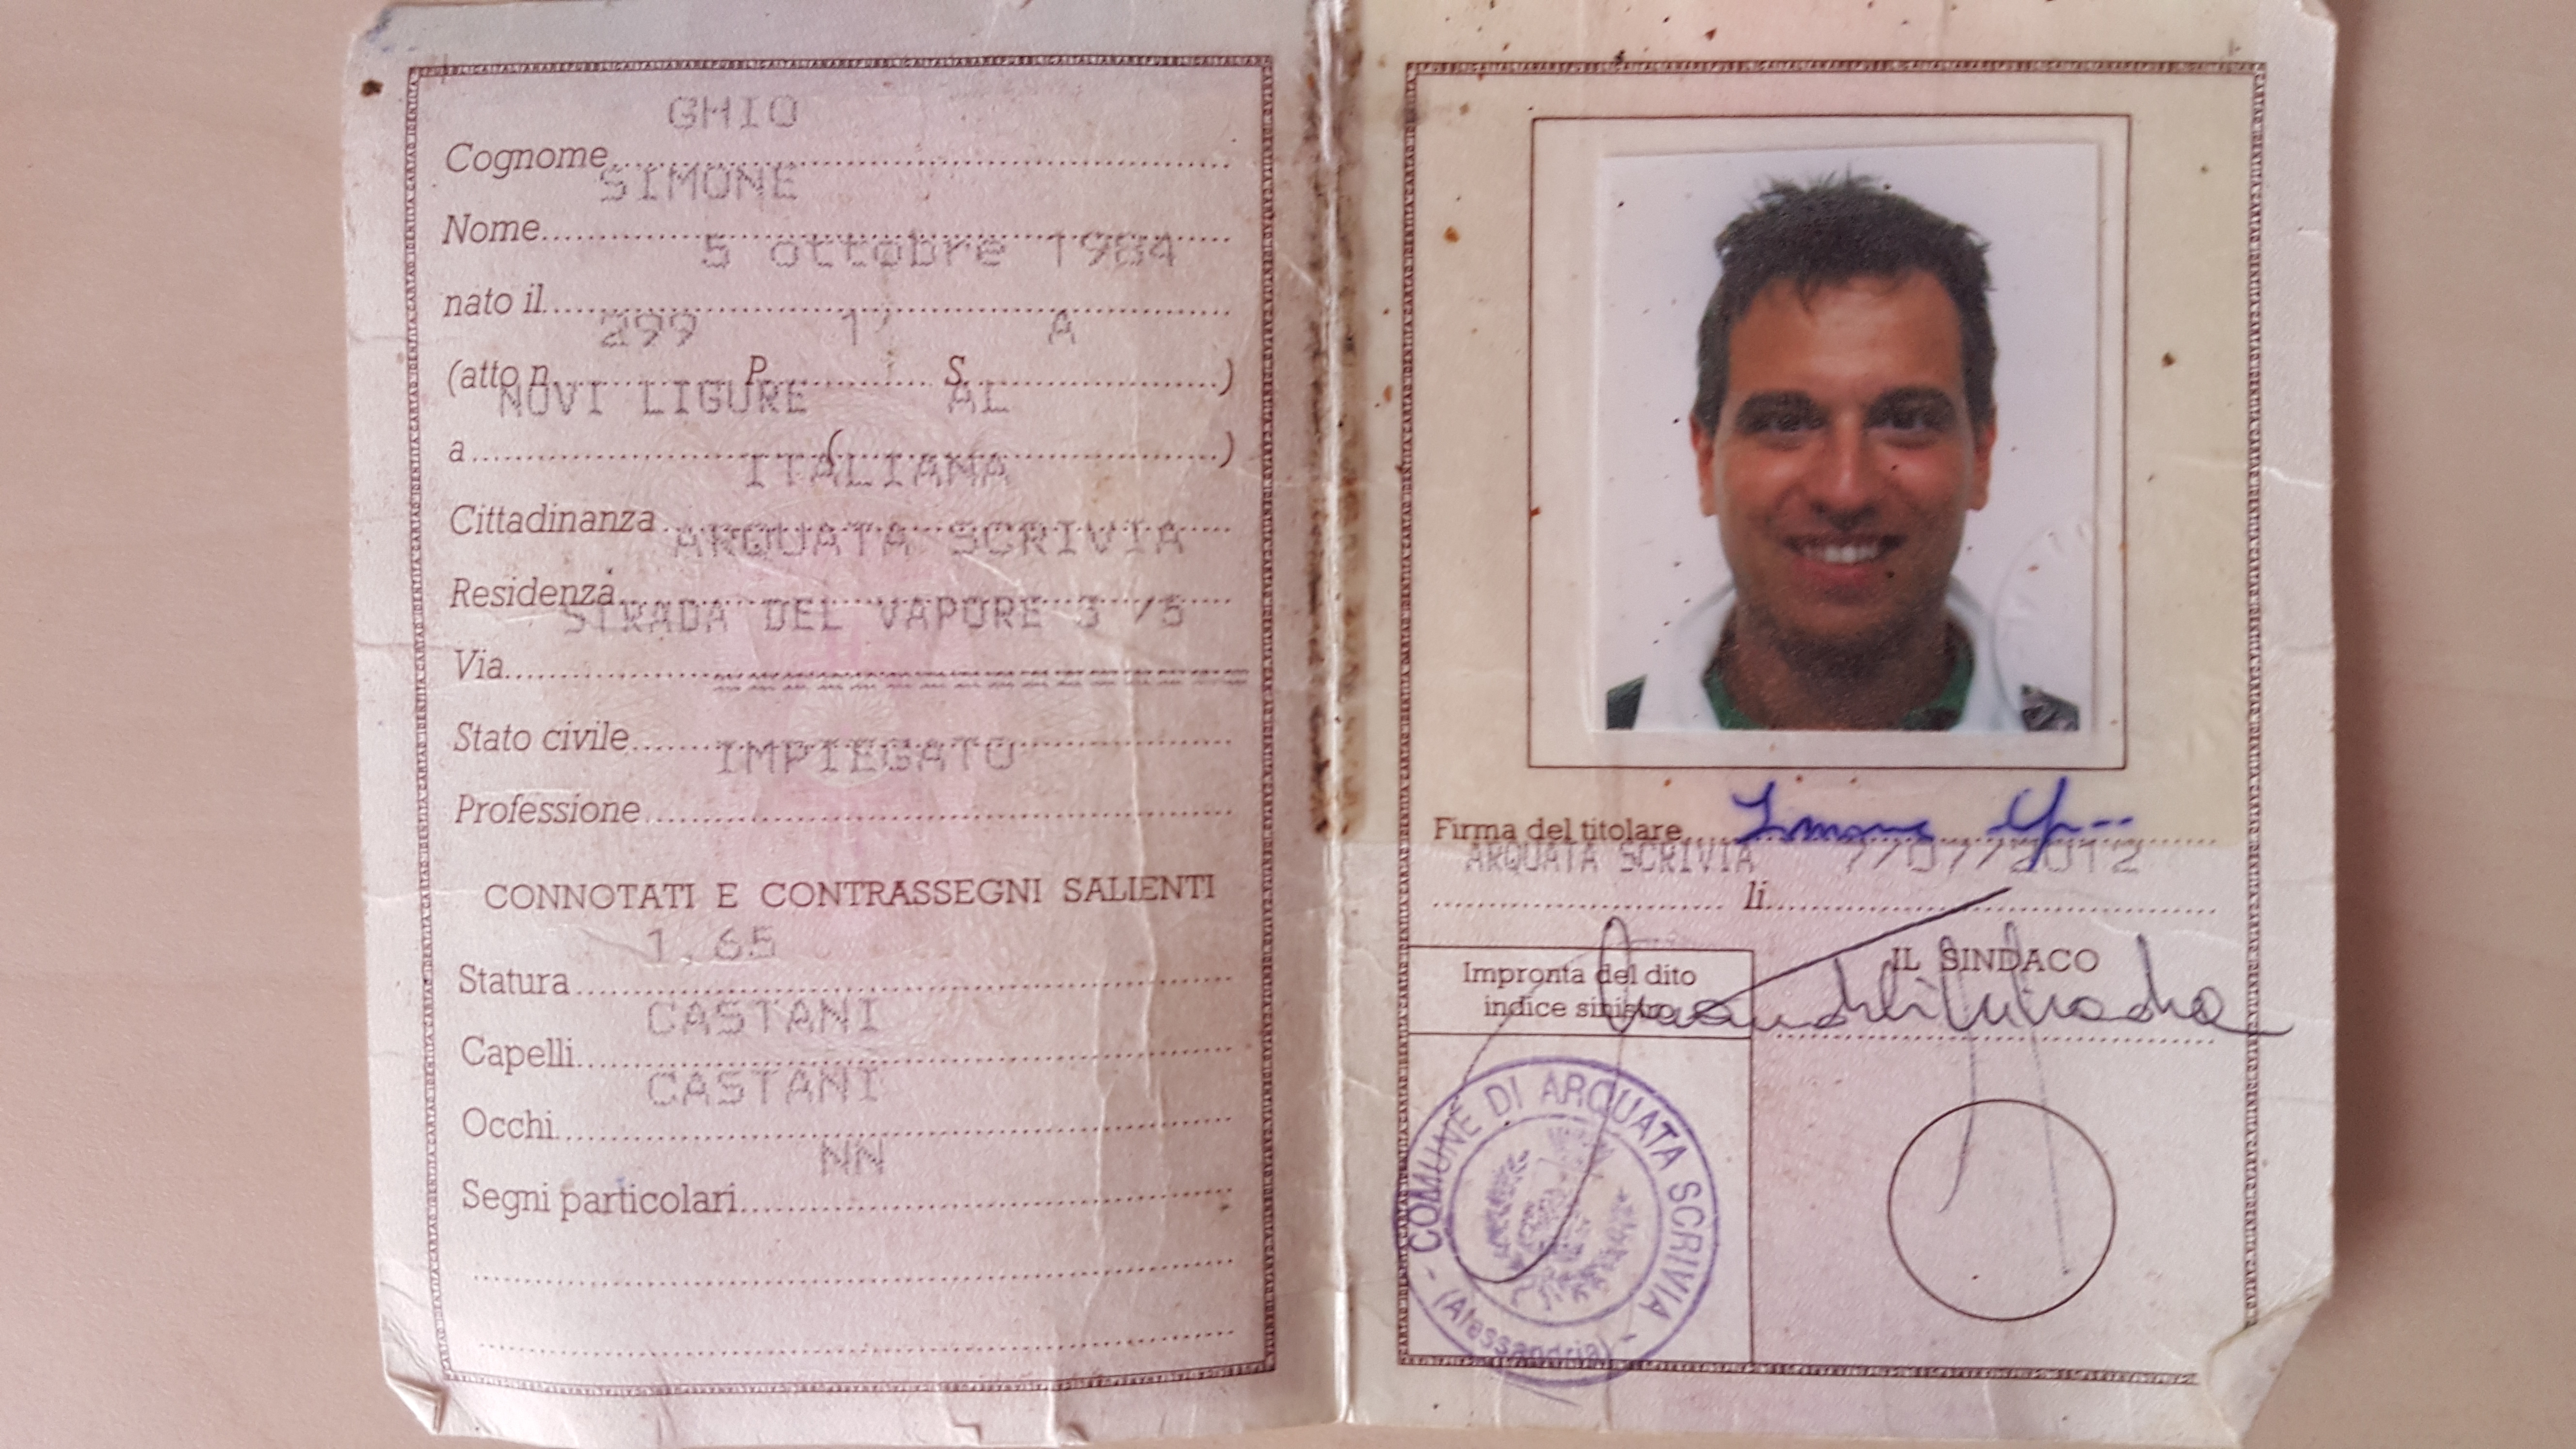 GHIO
Cognome
SIMONE
Nome
5 ottobre 1984
nato il
299 1 A
(atto n. P. S. )
NOVI LIGURE AL
a ( )
ITALIANA
Cittadinanza
ARQUATA SCRIVIA
Residenza
STRADA DEL VAPORE 3 /5
Via
Stato civile
IMPIEGATO
Professione
CONNOTATI E CONTRASSEGNI SALIENTI
1.65
Statura
CASTANI
Capelli
CASTANI
Occhi
NN
Segni particolari
Firma del titolare Simone
ARQUATA SCRIVIA 7/07/2012
li
Impronta del dito
indice sinistro
IL SINDACO
COMUNE DI ARQUATA SCRIVIA
(Alessandria)